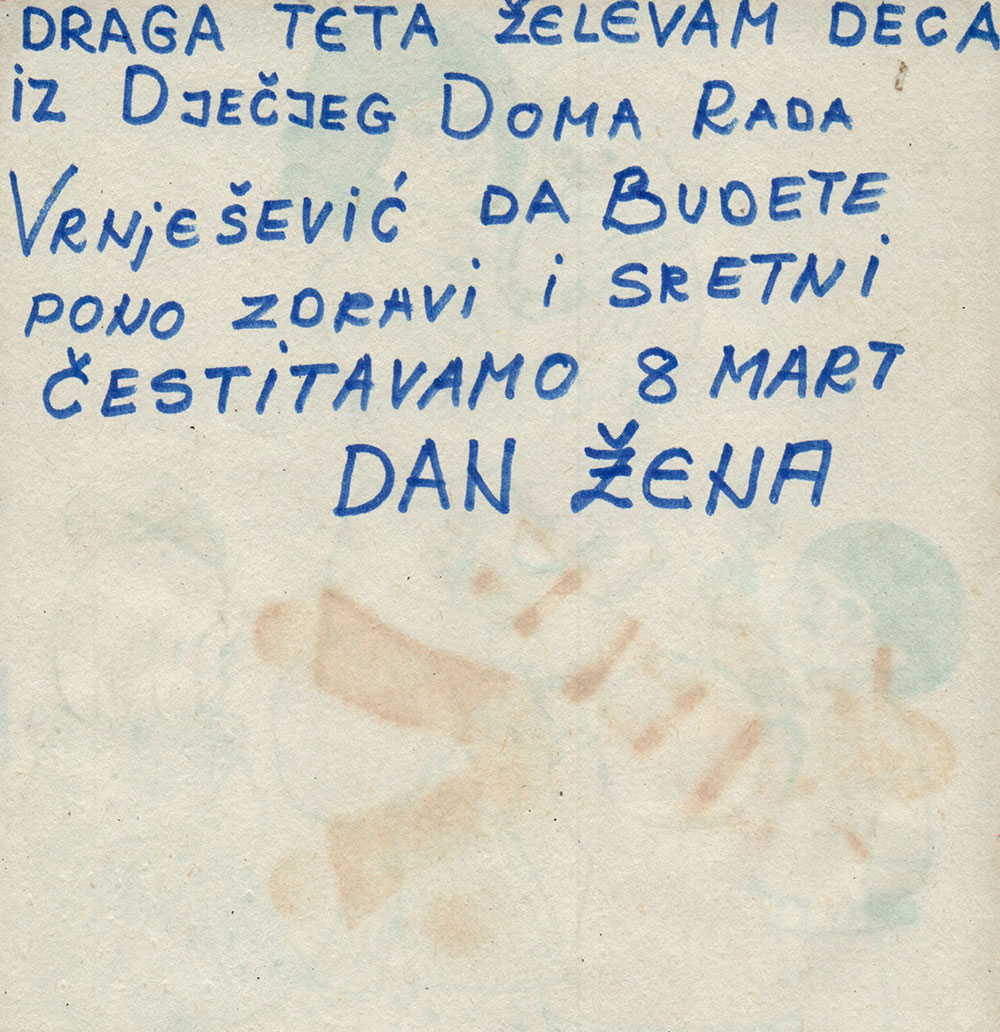 DRAGA TETA ŽELEVAM DECA
iz DJEČJEG DOMA RADA
VRNjEŠEVIĆ DA BUDETE
PONO ZDRAVi i SRETNi
ČESTiTAVAMO 8 MART
DAN ŽENA